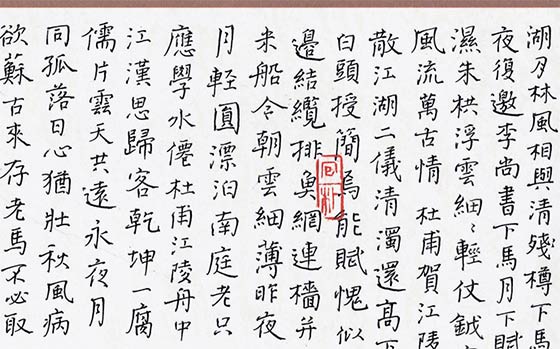 湖月林風相與清殘樽下馬
夜復邀李尚書下馬月下賦
濕朱栱浮雲細〻輕仗鉞
風流萬古情 杜甫賀江陵
散江湖二儀清濁還高下
白頭授簡焉能賦愧似
邊結纜排魚網連檣并
米船今朝雲細薄昨夜
月輕圓漂泊南庭老只
應學水僊杜甫江陵舟中
江漢思歸客乾坤一腐
儒片雲天共遠永夜月
同孤落日心猶壯秋風病
欲蘇古來存老馬不必取